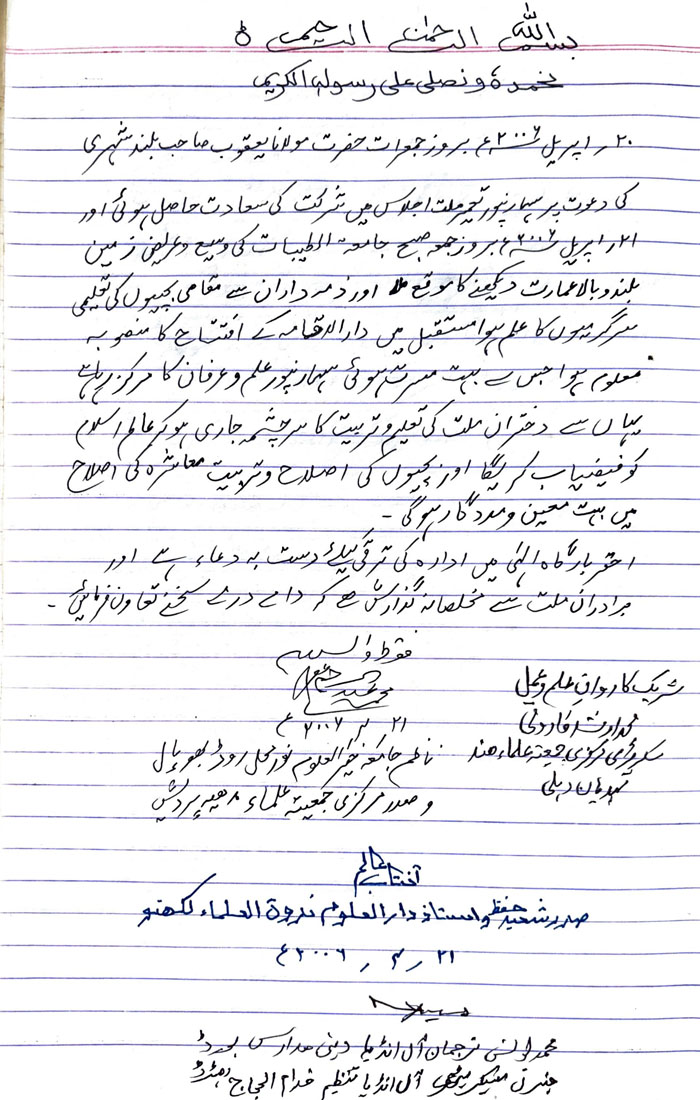 بسم اللہ الرحمٰن الرحیم ٥
نحمدہ و نصلی علی رسولہ الکریم
۲۰ر اپریل ۲۰۰۶ء بروز جمعرات حضرت مولانا یعقوب صاحب بلند شہری
کی دعوت پر سہارنپور تعمیر ملت اجلاس میں شرکت کی سعادت حاصل ہوئی اور
۲۱ر اپریل ۲۰۰۶ء بروز جمعہ صبح جامعۃ الطیبات کی وسیع و عریض زمین
بلند و بالا عمارت دیکھنے کا موقع ملا اور ذمہ داران سے مقامی بچیوں کی تعلیمی
سرگرمیوں کا علم ہوا مستقبل میں دارالاقامہ کے افتتاح کا منصوبہ
معلوم ہوا جس سے بہت مسرت ہوئی سہارنپور علم و عرفان کا مرکز رہا ہے
یہاں سے دختران ملت کی تعلیم و تربیت کا سرچشمہ جاری ہو کر عالم اسلام
کو فیضیاب کریگا اور بچیوں کی اصلاح و تربیت معاشرہ کی اصلاح
میں بہت معین و مددگار ہوگی ۔
احقر بارگاہ الٰہی میں ادارہ کی ترقی کیلئے دست بہ دعاء ہے اور
برادران ملت سے مخلصانہ گذارش ہے کہ دامے درمے سخنے تعاون فرمائیں ۔
فقط والسلام
شریک کاروان علم و عمل
محمد
۲۱ ر ۴ ۲۰۰۶ء
سکریٹری مرکزی جمعیۃ علماء ھند
دہلی
ناظم جامعہ خیر العلوم نور محل روڈ بھوپال
و صدر مرکزی جمعیۃ علماء مدھیہ پردیش
آفتاب عالم
صدر شعبہ حفظ و استاذ دار العلوم ندوۃ العلماء لکھنو
۲۱ ر ۴ ر ۲۰۰۶ء
محمد یونس ترجمان آل انڈیا دینی مدارس بورڈ
جنرل سیکریٹری آل انڈیا تنظیم خدام الحجاج